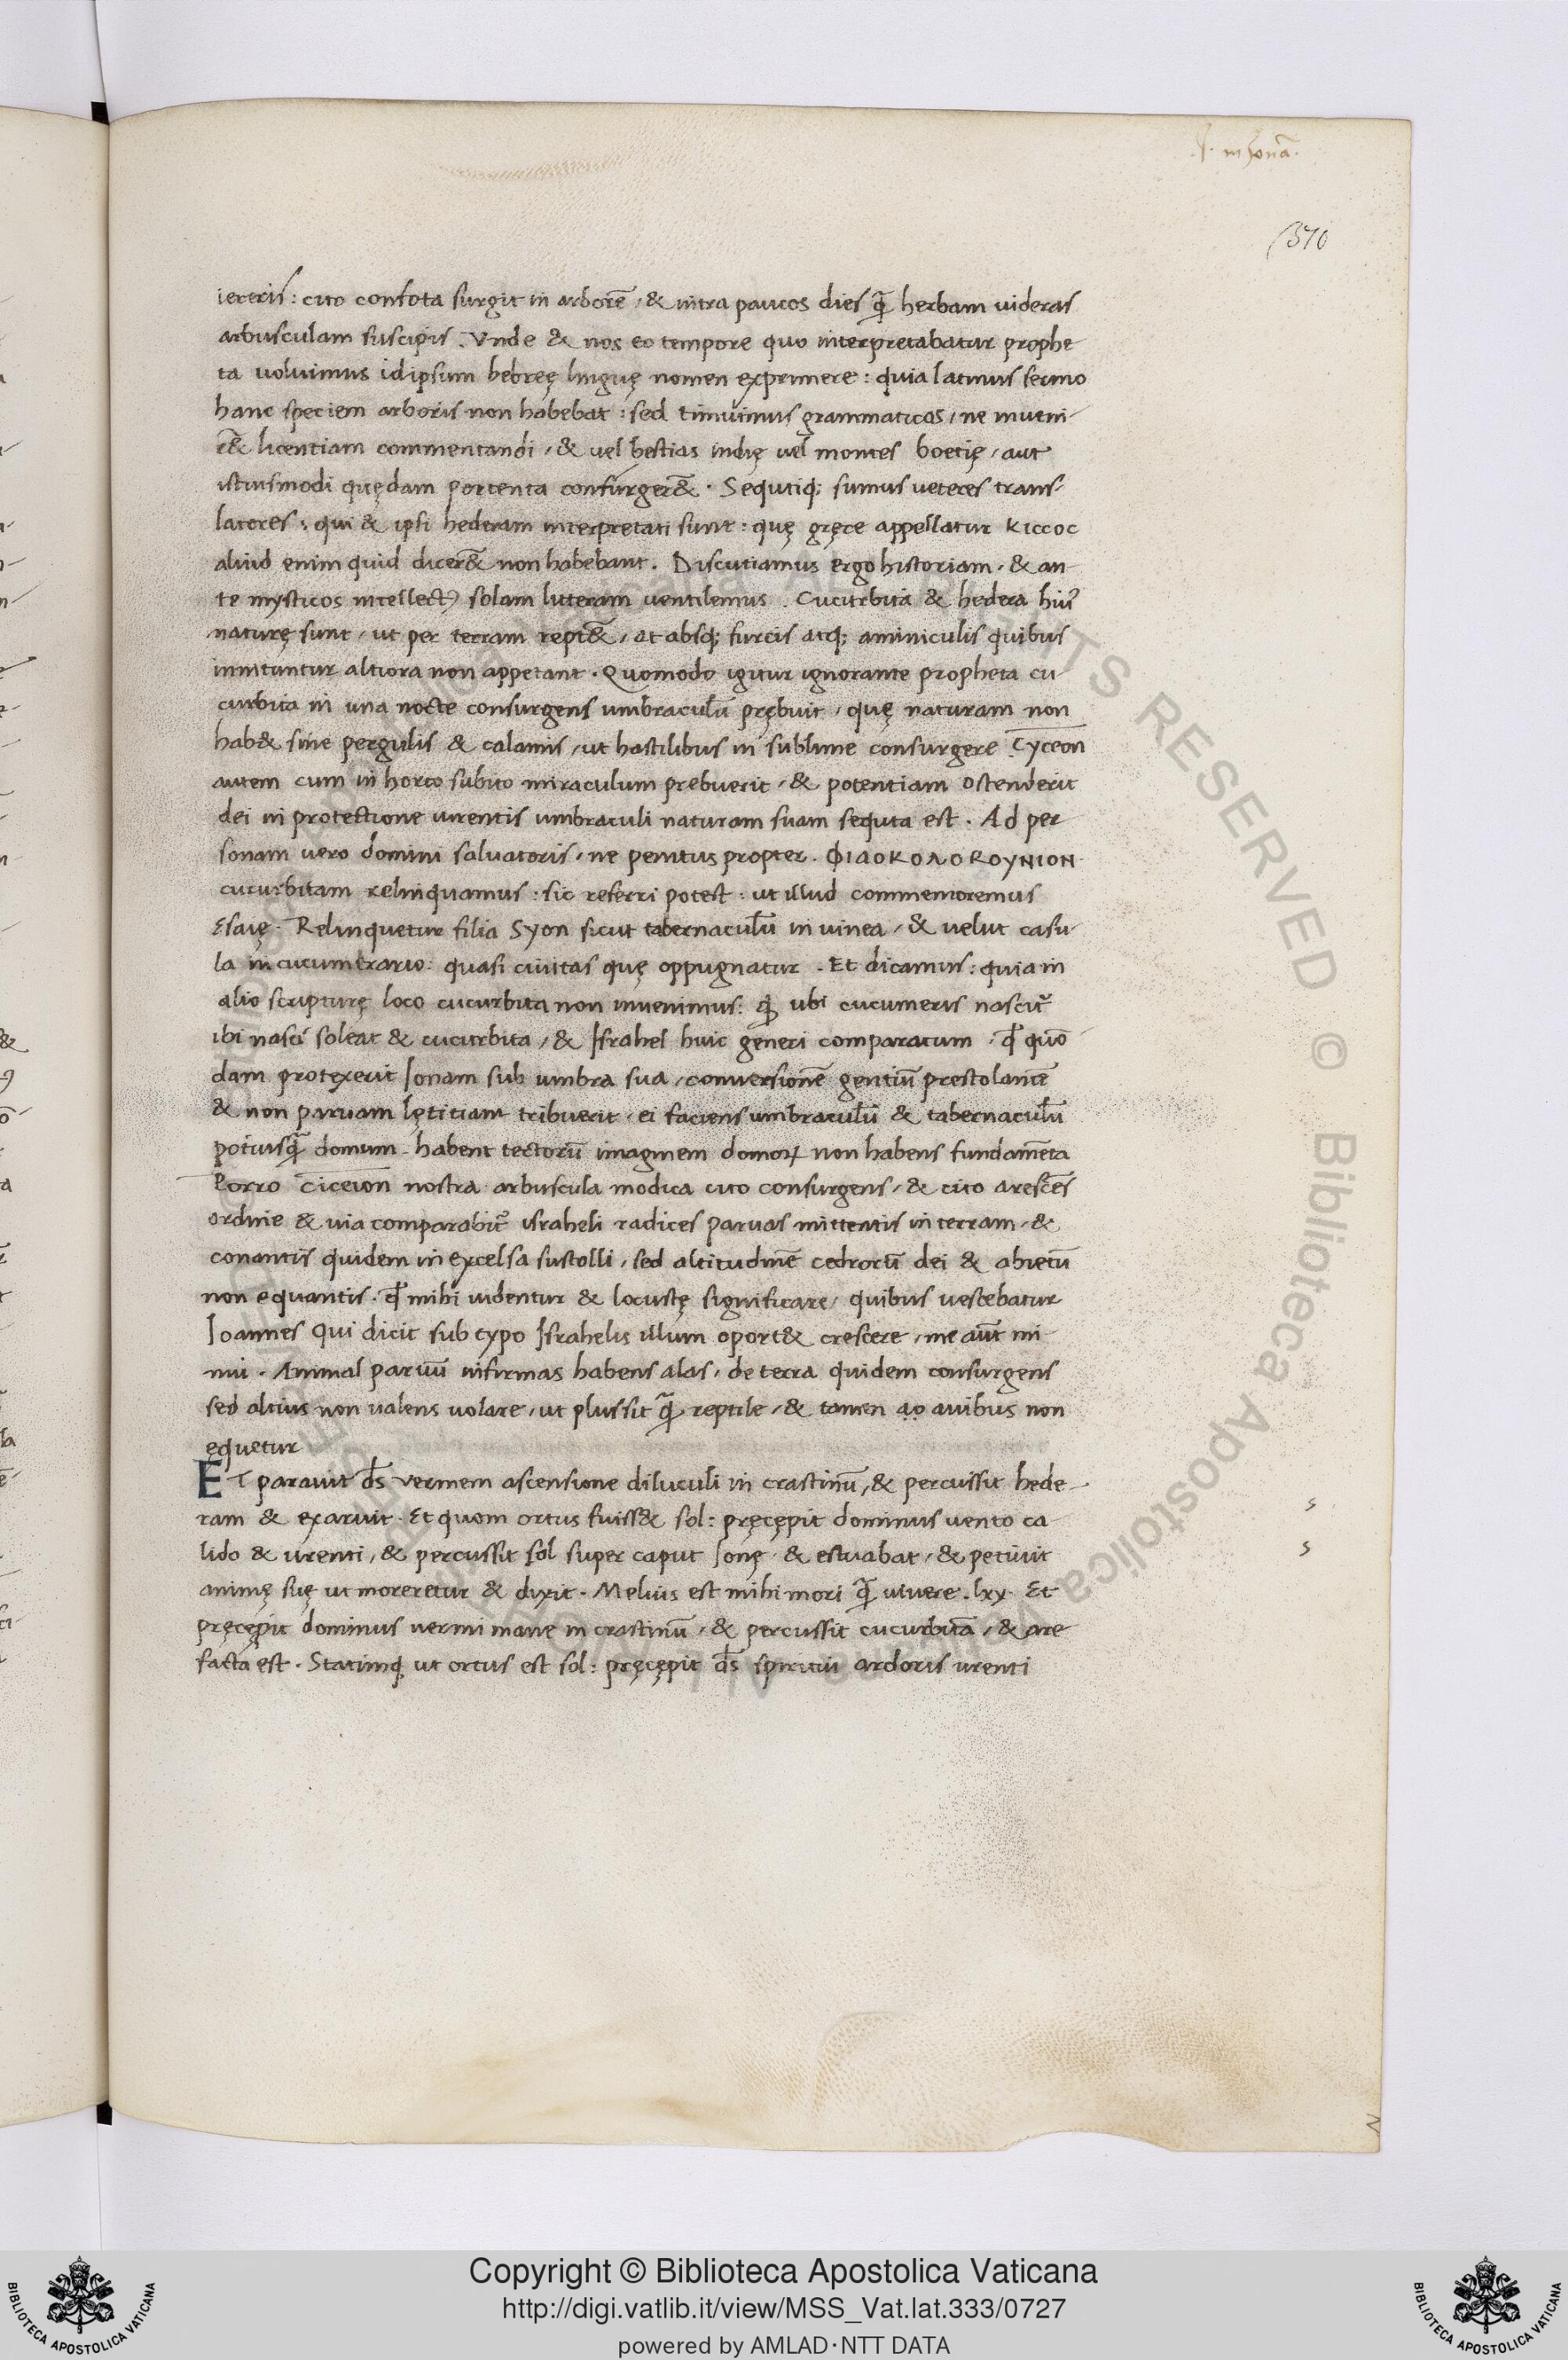 .J. in Jonā.
370
iereris: cito confota surgit in arborē, & intra paucos dies q̄ herbam uideras
arbusculam suscipis. Vnde & nos eo tempore quo interpretabatur prophe
ta uoluimus idipsum hebreę linguę nomen exprimere: quia latinus sermo
hanc speciem arboris non habebat: sed timuimus grammaticos, ne inueni-
rē& licentiam commentandi, & uel bestias indię uel montes boetię, aut
istiusmodi quędam portenta confurgerē&. Sequtiq; sumus ueteres trans-
latores: qui & ipsi hederam interpretati sunt: quę gręce appellatur KICCOC
aliud enim quid dicerē& non habebant. Discutiamus ergo historiam, & an-
te mysticos intellectꝰ solam litteram uentilemus. Cucurbita & hedera huiꝰ
naturę sunt, ut per terram reptē&, at absq; furcis atq; aminiculis quibus
innituntur altiora non appetant. Quomodo igitur ignorante propheta cu-
curbita in una nocte consurgens umbraculū prębuit, quę naturam non
hab& sine pergulis & calamis, ut hastilibus in sublime consurgere Cyceon
autem cum in horto subito miraculum prebuerit, & potentiam ostenderit
dei in protectione uirentis umbraculi naturam suam sequta est. Ad per
sonam uero domini saluatoris, ne penitus propter. ΦΙΔΟΚΟΛΟΚΟΥΝΙΟΝ
cucurbitam relinquamus: sic referri potest: ut illud commemoremus
Esaię. Relinquetur filia Syon sicut tabernaculū in uinea, & uelut casu-
la in cucumerario: quasi ciuitas quę oppugnatur. Et dicamus: quia in
alio scripturę loco cucurbita non inuenimus: q̄ ubi cucumeris nascit᷑
ibi nasci soleat & cucurbita, & Israhel huic generi comparatum, qđ quō
dam protexerit Jonam sub umbra sua, conuersionē gentiū prestolantē
& non paruam lętitiam tribuerit, ei faciens umbraculū & tabernaculū
potiusq̄ domum habent tectorū imaginem domoꝝ non habens fundamēta
Porro Ciceion nostra arbuscula modica cito consurgens, & cito arescēs
ordine & uia comparabit᷑ israheli radices paruas mittentis in terram, &
conantis quidem in excelsa sustolli, sed altitudinē cedrorū dei & abietū
non equantis. qđ mihi uidentur & locustę significare, quibus uescebatur
Joannes qui dicit sub typo Israhelis illum oport& crescere, me aūt mi-
nui. Animal paruū infirmas habens alas, de terra quidem consurgens
sed altius non ualens uolare, ut plus sit q̄ reptile, & tamen ạọ auibus non
ęquetur
ET parauit dś vermem ascensione diluculi in crastinū, & percussit hede-
ram & exaruit. Et quom ortus fuiss& sol: pręcępit dominus uento ca-
lido & urenti, & percussit sol super caput Jonę. & estuabat, & petiuit
animę suę ut moreretur & dixit. Melius est mihi mori q̄ uiuere. lxx. Et
pręcępit dominus uermi mane in crastinū, & percussit cucurbitā, & are
facta est. Statimq; ut ortus est sol: pręcępit dś spiritui ardoris urenti
s
s
Copyright © Biblioteca Apostolica Vaticana
http://digi.vatlib.it/view/MSS_Vat.lat.333/0727
powered by AMLAD·NTT DATA